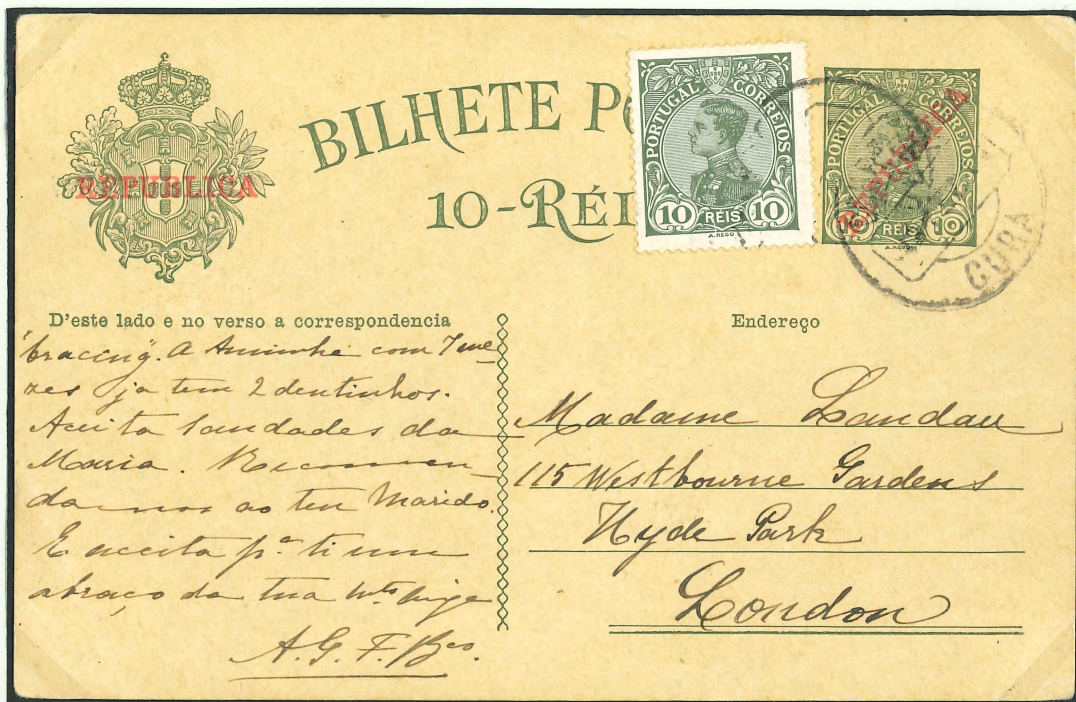 BILHETE PO
10-RÉI
REPUBLICA
PORTUGAL CORREIOS
10 RÉIS 10
A. REGO
PORTUGAL CORREIOS
REPUBLICA
10 RÉIS 10
A. REGO
CUBA
D'este lado e no verso a correspondencia
"bracing". A Aninha com 7 me-
zes ja tem 2 dentinhos.
Aceita saudades da
Maria. Recommen-
da nos ao teu Marido.
E aceita pª ti um
abraço da tua mto amiga
A. G. F. Bco.
Endereço
Madame Landau
115 Westbourne Gardens
Hyde Park
London